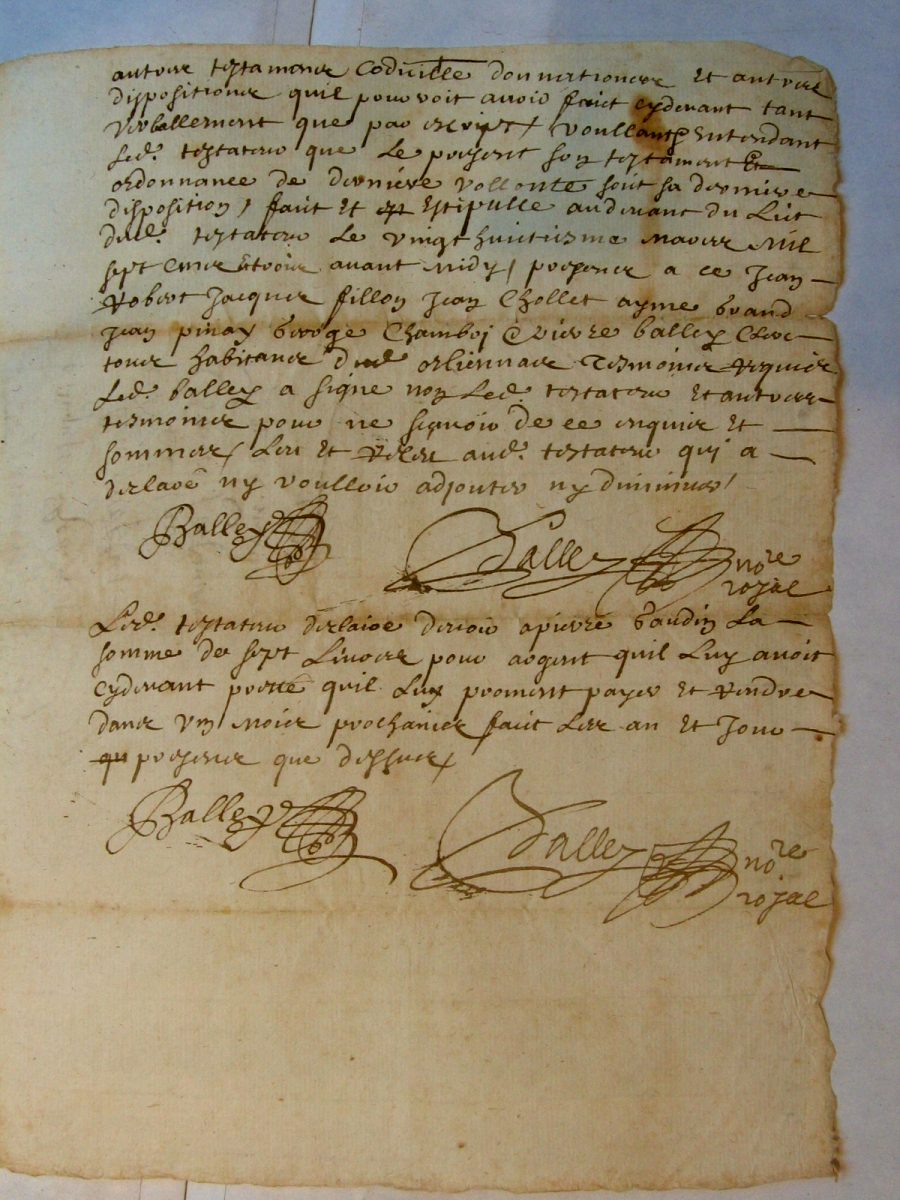 autres testamens Codicille donnations Et autres
dispositions quil pourroit avoir faict cydevant tant
verballement que par escript, voullant Entendant
Led. testateur que Le present son testament Et
ordonnance de derniere vollonté soit sa derniere
disposition, faict Et Estipullé audevant du Lict
dud. testateur Le vingt huictiesme mars Mil
sept Cens avant Midy, presens a ce Jean
Robert Jacques fillon Jean Chollet ayme brand
Jean pinay george Chamboj Pierre balley
tous habitans dud. orliennas Tesmoins Requis
Led. balley a signé non Led. testateur Et autres
tesmoins pour ne sçavoir de ce enquis Et
sommes, Leu Et Releu aud. testateur qui a
desclaré ny voulloir adjouter ny diminuer,
Balley
Dalley no.re
royal
Led. testateur desclaire devoir a pierre baudin La
somme de sept Livres pour argent quil Luy avoit
cydevant presté quil Luy proment payer Et Rendre
dans Un Mois prochains faict Les an Et Jour
qu presens que dessus,
Balley
Dalley no.re
royal